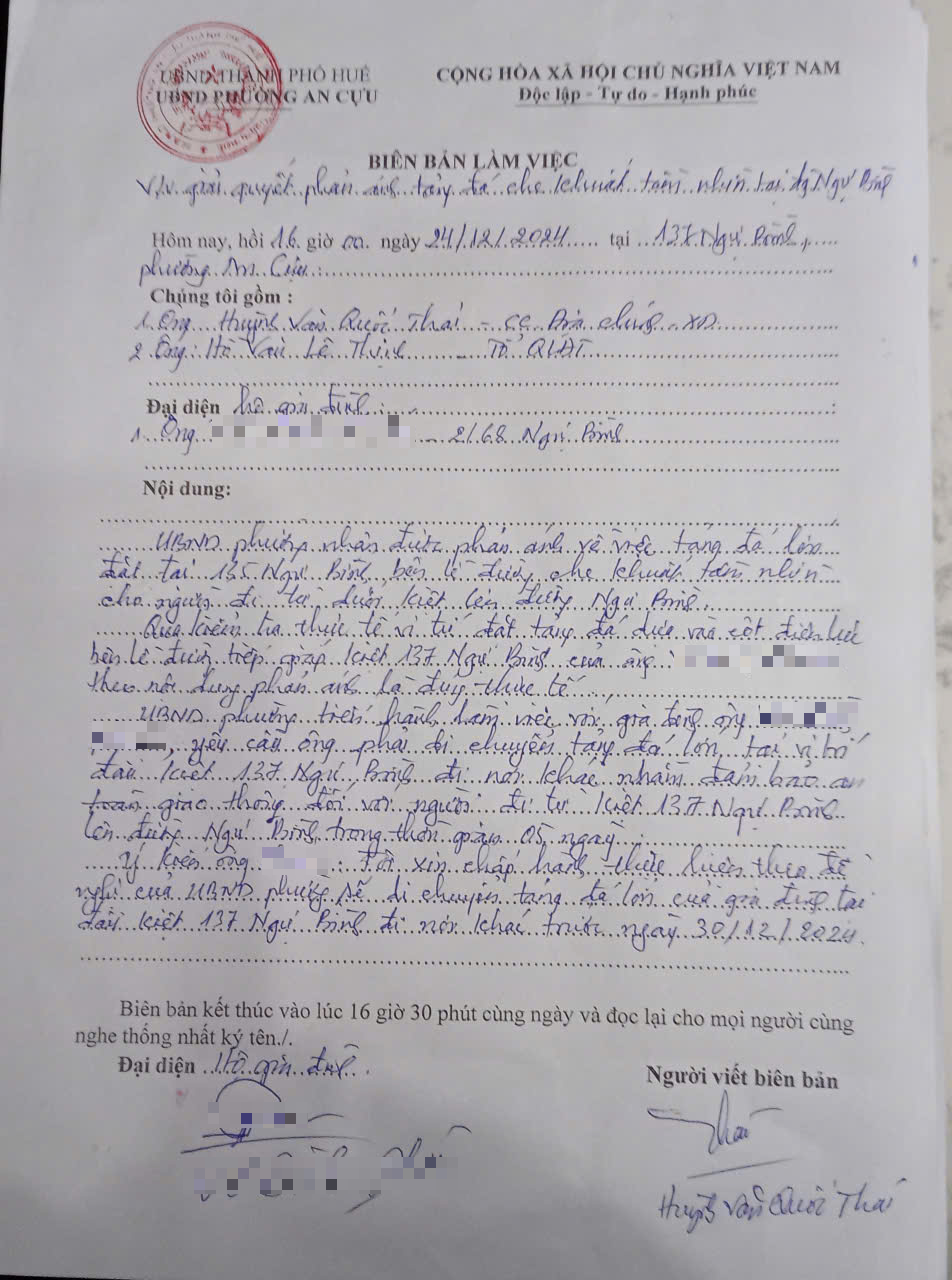 UBND THÀNH PHỐ HUẾ
UBND PHƯỜNG AN CỰU
CỘNG HÒA XÃ HỘI CHỦ NGHĨA VIỆT NAM
Độc lập - Tự do - Hạnh phúc
BIÊN BẢN LÀM VIỆC
V/v giải quyết phản ánh tảng đá che khuất tầm nhìn tại đg Ngự Bình
Hôm nay, hồi 16 giờ 00 ngày 24/12/2024 tại 137 Ngự Bình,
phường An Cựu
Chúng tôi gồm :
1. Ông Huỳnh Văn Quốc Thái - CC Địa chính - XD
2. Ông: Hồ Văn Lê Thịnh - Tổ QLĐT
Đại diện hộ gia đình :
1. Ông - 2/68 Ngự Bình
Nội dung:
UBND phường nhận được phản ánh về việc tảng đá lớn
đặt tại 135 Ngự Bình, bên lề đường che khuất tầm nhìn
cho người đi từ dưới kiệt lên đường Ngự Bình.
Qua kiểm tra thực tế vị trí đặt tảng đá dựa vào cột điện lực
bên lề đường tiếp giáp kiệt 137 Ngự Bình của ông
theo nội dung phản ánh là đúng thực tế
UBND phường tiến hành làm việc với gia đình ông
, yêu cầu ông phải di chuyển tảng đá lớn tại vị trí
đầu kiệt 137 Ngự Bình đi nơi khác nhằm đảm bảo an
toàn giao thông đối với người đi từ kiệt 137 Ngự Bình
lên đường Ngự Bình trong thời gian 05 ngày
Ý kiến ông : Tôi xin chấp hành thực hiện theo đề
nghị của UBND phường sẽ di chuyển tảng đá lớn của gia đình tại
đầu kiệt 137 Ngự Bình đi nơi khác trước ngày 30/12/2024.
Biên bản kết thúc vào lúc 16 giờ 30 phút cùng ngày và đọc lại cho mọi người cùng
nghe thống nhất ký tên./.
Đại diện Hộ gia đình
Người viết biên bản
Thái
Huỳnh Văn Quốc Thái